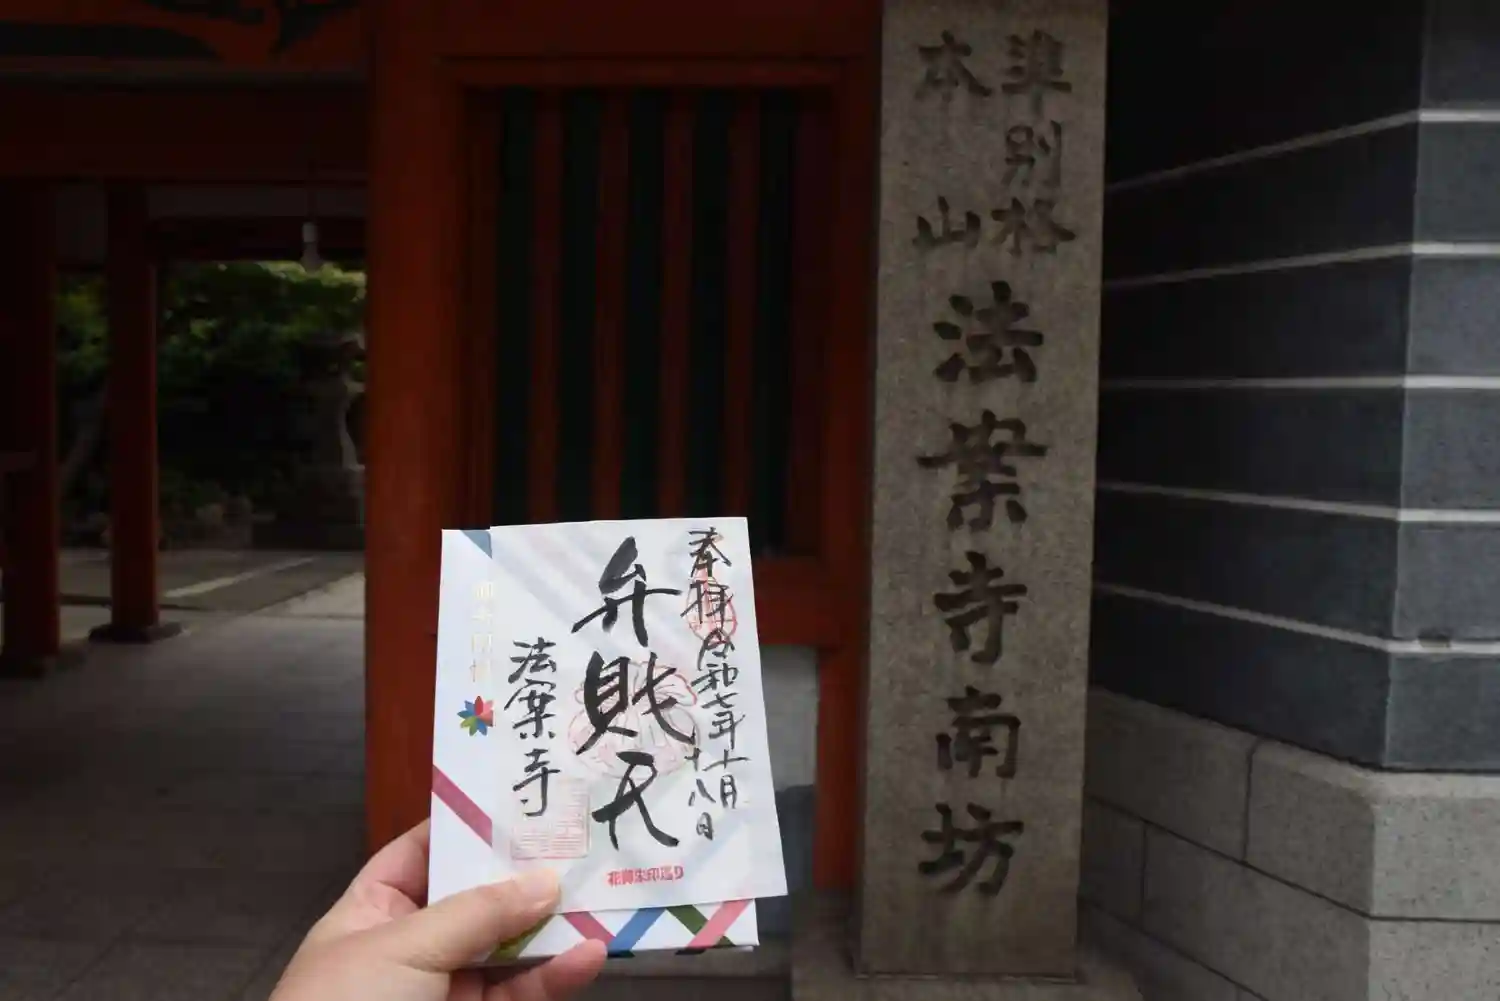 準別格
本山
法案寺南坊
奉拝
令和七年十月
十八日
弁財天
法案寺
花御朱印巡り